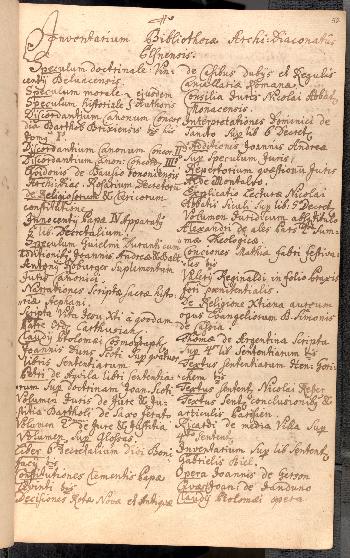 52
Inventarium Bibliothecæ Archi-Diaconatus
Olsnensis.
Speculum doctrinale Vin-
centij Beluacensis.
Speculum morale ejusdem
Speculum historiale Authoris
Discordantium Canonum Concor
dia Barthol Brixiensis bis
Tomi
Discordantium Canonum Concor. II
Discordantium Canon: Concor. III
Guidonis de Baysio bononiensis
Archidiac: Rosarium Decretorum
de et Clericorum
Innocentij Papæ IV Apparatus
5 lib: Decretalium
Speculum Guielmi Duranti cum
additionib Joannis Andreæ
Antonij Koburger Supplementum
Juris Canonici
Narrationes Scriptæ sacræ histo-
riæ Stephani
Scripta Vita Jesu Xti a quodam
Patre Ord: Carthusian
Claudij Ptolomæi Cosmograph
Joannis Duns Scoti Sup quatuor
libris Sententiarum
Petri de Aquila libri Sententia-
rum Sup doctrinam Joan: Scoti
Volumen Juris de Jure & Ju-
stitia Bartholi de Saxo ferrato
Volumen 2 de Jure & Justitia
Volumen Sup Glossas
Liber 6 Decretalium Dni Boni
facij bis
Constitutiones Clementis Papæ
Quinti bis
Decisiones Rotæ Novæ et Antiquæ
de Casibus dubijs et Regulis
Cancellariæ Romanæ
Consilia Juris Nicolai Abbat.
Monacensis.
Interpretationes Dominici de
Sancto Sup lib 6 Decret
Additiones Joannis Andreæ
Sup Speculum Juris
Repertorium quæstionum Juris
de Montalvo
Explicatio Lecturæ Nicolai
Abbatis Siculi Sup lib 5 Decret
Volumen Juridicum
Alexandri de ales pars 4ta Sum-
mæ Theologicæ
Conciones Mathiæ fabri festiva-
les bis
Valerij Reginaldi in folio Praxis
fori pænitentialis
De Religione Xtiana aureum
opus Evangeliorum B: Simonis
de Cassia
Thomæ de Argentina Scripta
Sup 4 lib Sententiarum bis
Textus Sententiarum Hen: Gori-
chem bis
Textus Sentent: Nicolai Keßer
Textus Sent: conclusionib &
articulis Parisien:
Ricardi de media Villa Sup
4tum Sentent.
Inventarium Sup lib Sentent:
Gabrielis Biel
Opera Joannis de Gerson
Joani de Janduno
Claudij Ptolomæi opera